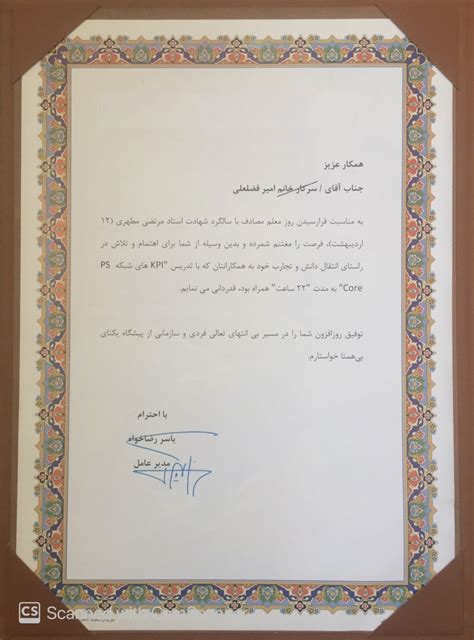 همکار عزیز
جناب آقای / سرکار خانم امیر فضلعلی
به مناسبت فرارسیدن روز معلم مصادف با سالگرد شهادت استاد مرتضی مطهری (۱۲
اردیبهشت)، فرصت را مغتنم شمرده و بدین وسیله از شما برای اهتمام و تلاش در
راستای انتقال دانش و تجارب خود به همکارانتان که با تدریس "KPI های شبکه PS
Core" به مدت "۲۲ ساعت" همراه بود، قدردانی می نمایم.
توفیق روزافزون شما را در مسیر بی انتهای تعالی فردی و سازمانی از پیشگاه یکتای
بی‌همتا خواستارم.
با احترام
یاسر رضاخواه
مدیر عامل
CS Scanned with CamScanner